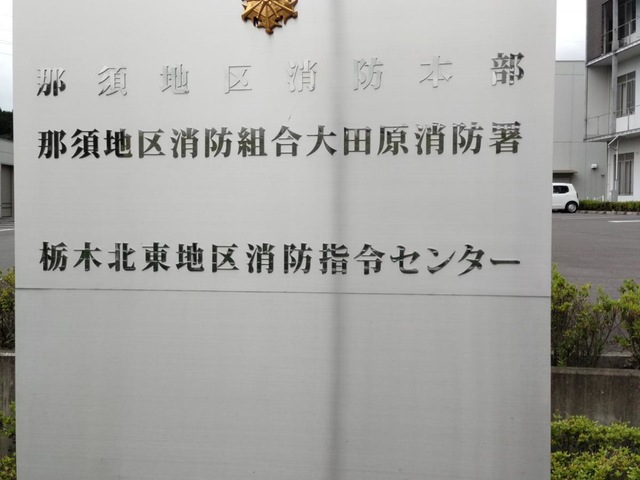 那須地区消防本部
那須地区消防組合大田原消防署
栃木北東地区消防指令センター